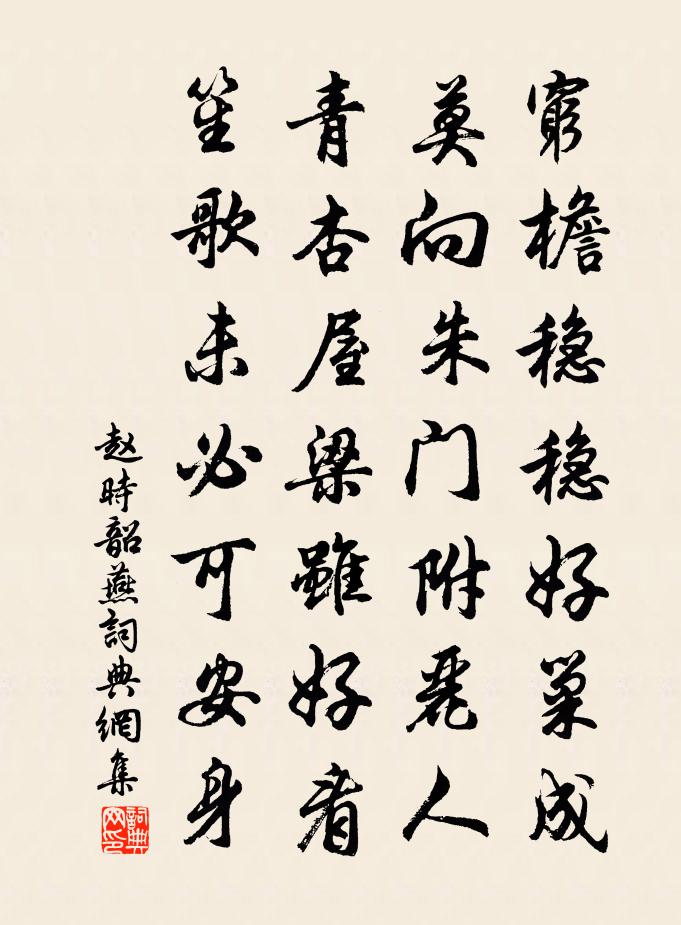 窮檐稳稳好巢成
莫向朱门附麗人
青杏屋梁雖好看
笙歌未必可安身
赵時韶燕詞典網集
詞典网印